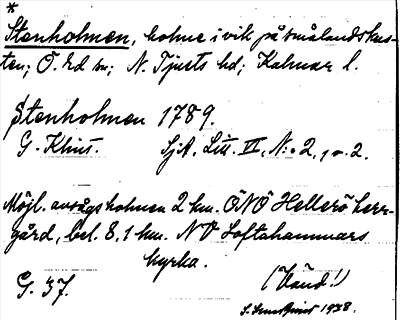 *
Stenholmen, holme i vik på smålandskus-
ten; Ö. Ed sn; N. Tjusts hd; Kalmar l.
Stenholmen 1789.
G. Klint. SjA. Litt. VI, N:o 2, 
Möjl. avsågs holmen 2 km. ÖNÖ Hellerö herr-
gård, bel. 8,1 km. NO Loftahammars
kyrka.
G. 37. (Vänd!)
1938.